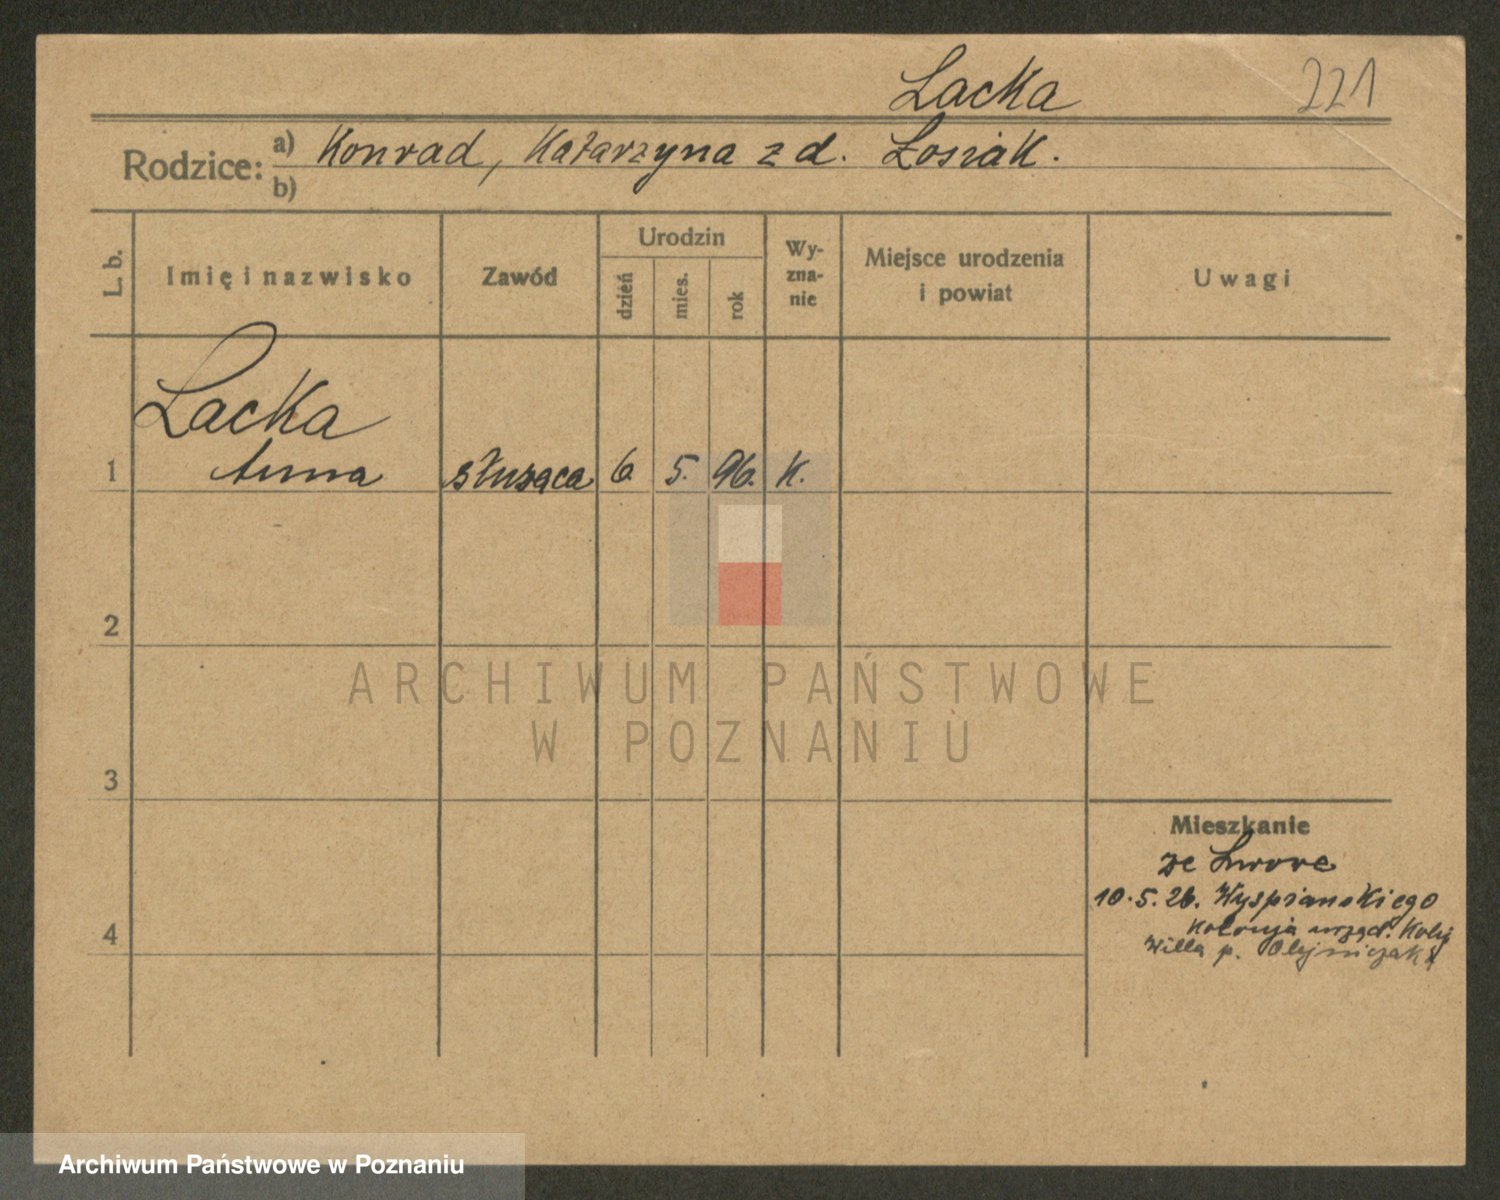 Lacka
221
Rodzice: a) Konrad, Katarzyna z d. Łosiak.
b)
L. b.
Imię i nazwisko
Zawód
Urodzin
dzień
mies.
rok
Wy-
zna-
nie
Miejsce urodzenia
i powiat
Uwagi
Lacka
1 Anna służąca 6. 5. 96. K.
2
3
4
Mieszkanie
ze Lwowa
10.5.26. Wyspiańskiego
Kolonja urzęd. Kolej
Willa p. Olejniczaka
ARCHIWUM PAŃSTWOWE
W POZNANIU
Archiwum Państwowe w Poznaniu